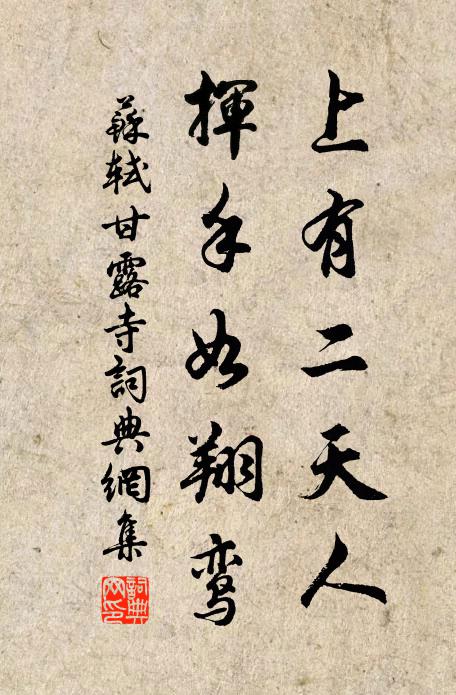 上有二天人
揮手如翔鸾
蘇軾甘露寺詞典網集
詞典网印